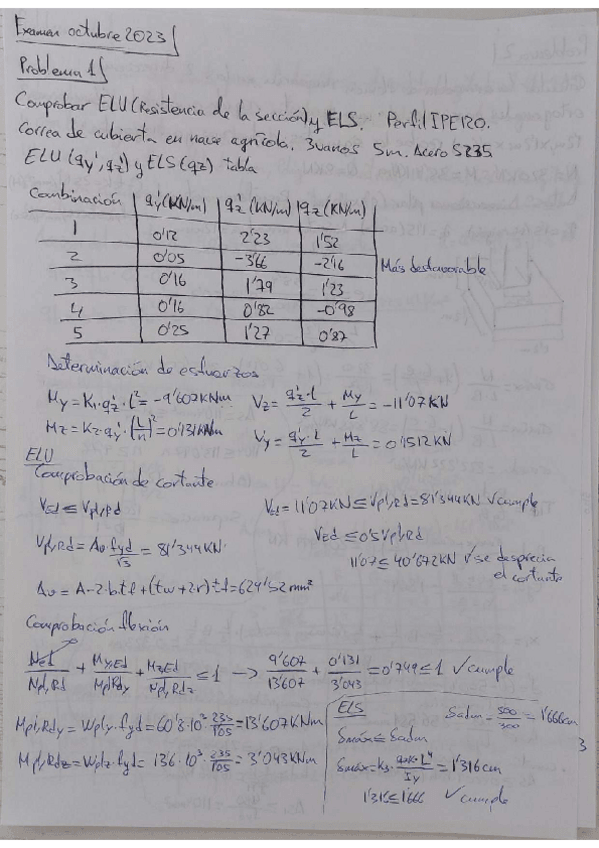 Examen octubre 2023
Problema 1
Comprobar ELU (Resistencia de la sección) y ELS. Perfil IPE120.
Correa de cubierta en nave agrícola. 3 vanos 5m. Acero S235
ELU (qy', qz') y ELS (qz) tabla
Combinación | qy' (KN/m) | qz' (KN/m) | qz (KN/m)
1 | 0'12 | 2'23 | 1'52
2 | 0'05 | -3'66 | -2'16 Más desfavorable
3 | 0'16 | 1'79 | 1'23
4 | 0'16 | 0'82 | -0'98
5 | 0'25 | 1'27 | 0'87
Determinación de esfuerzos
My = K1·qz'·L² = -9'607 KNm Vz = qz'·L/2 + My/L = -11'07 KN
Mz = K2·qy'·(L/n)² = 0'131 KNm Vy = qy'·L/2 + Mz/L = 0'1512 KN
ELU
Comprobación de cortante
VEd ≤ Vpl,Rd VEd = 11'07 KN ≤ Vpl,Rd = 81'344 KN ✓ cumple
Vpl,Rd = Av·fyd/√3 = 81'344 KN VEd ≤ 0'5 Vpl,Rd
11'07 ≤ 40'672 KN ✓ se desprecia el cortante
Av = A-2·b·tf+(tw+2·r)·tf = 624'52 mm²
Comprobación flexión
NEd/Npl,Rd + MyEd/MplRdy + MzEd/Mpl,Rdz ≤ 1 → 9'607/13'607 + 0'131/3'043 = 0'749 ≤ 1 ✓ cumple
Mpl,Rdy = Wply·fyd = 60'8·10³·235/1'05 = 13'607 KNm
Mpl,Rdz = Wplz·fyd = 13'6·10³·235/1'05 = 3'043 KNm
ELS δadm = 500/300 = 1'666 cm
δmáx ≤ δadm
δmáx = K3·qzk·L⁴/Iy = 1'316 cm
1'316 ≤ 1'666 ✓ cumple
3